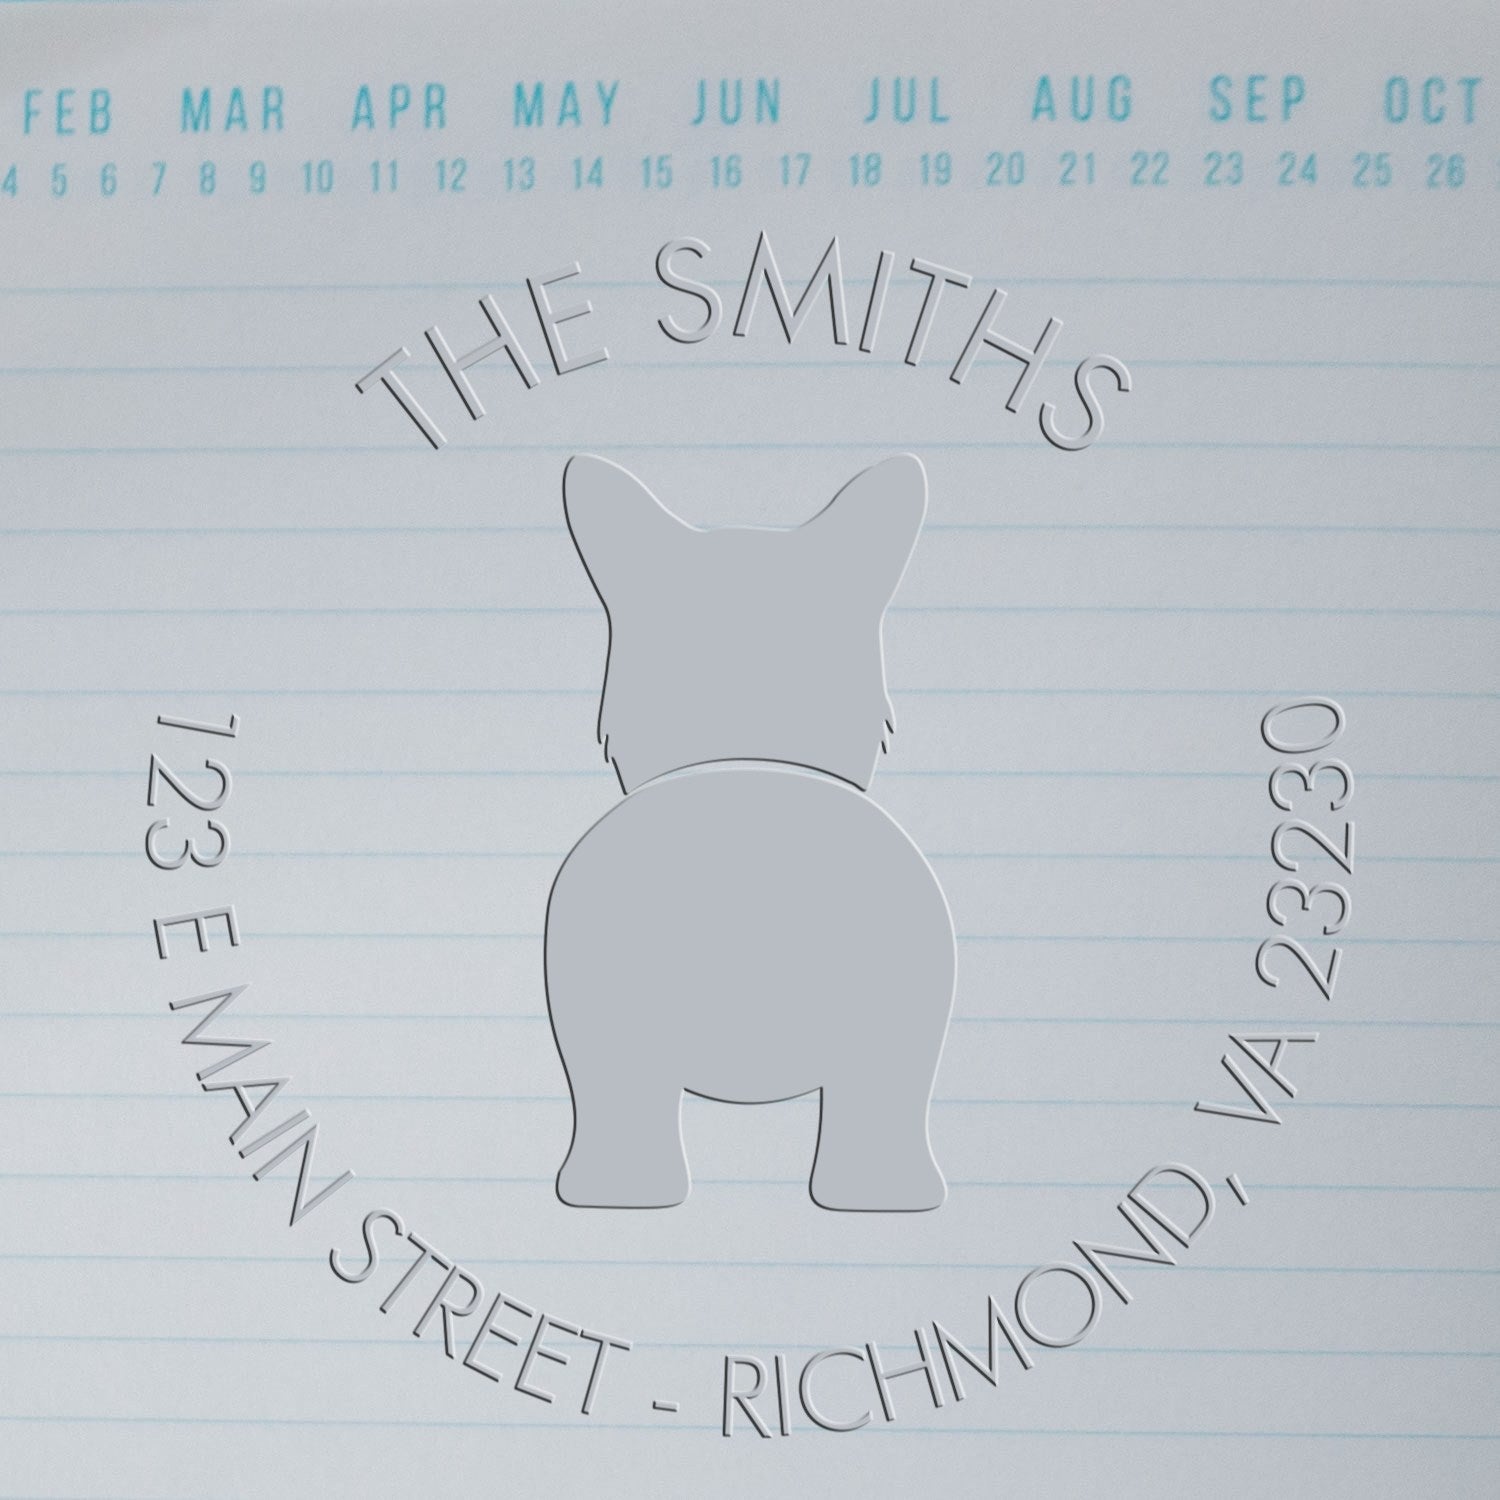 FEB MAR APR MAY JUN JUL AUG SEP OCT
4 5 6 7 8 9 10 11 12 13 14 15 16 17 18 19 20 21 22 23 24 25 26
THE SMITHS
123 E MAIN STREET - RICHMOND, VA 23230